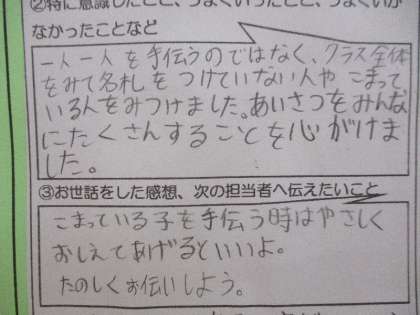 ②特に意識したこと、うまくいったこと、うまくいか
なかったことなど
一人一人を手伝うのではなく、クラス全体
をみて名札をつけていない人や こまって
いる人をみつけました。あいさつをみんな
にたくさんすることを心がけま
した。
③お世話をした感想、次の担当者へ伝えたいこと
こまっている子を手伝う時はやさしく
おしえてあげるといいよ。
たのしくお伝いしよう。